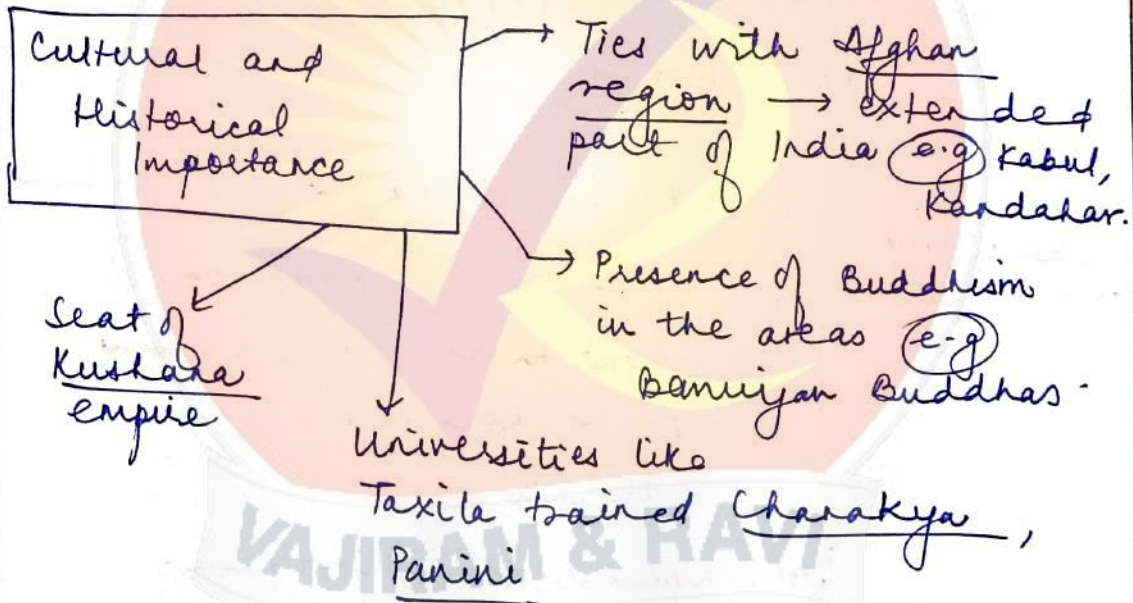 Cultural and
Historical
Importance
Ties with Afghan
region → extended
part of India e.g Kabul,
Kandahar.
Presence of Buddhism
in the areas e-g
Bamiyan Buddhas
Seat of
Kushana
empire
Universities like
Taxila trained Chanakya,
Panini
VAJIRAM & RAVI